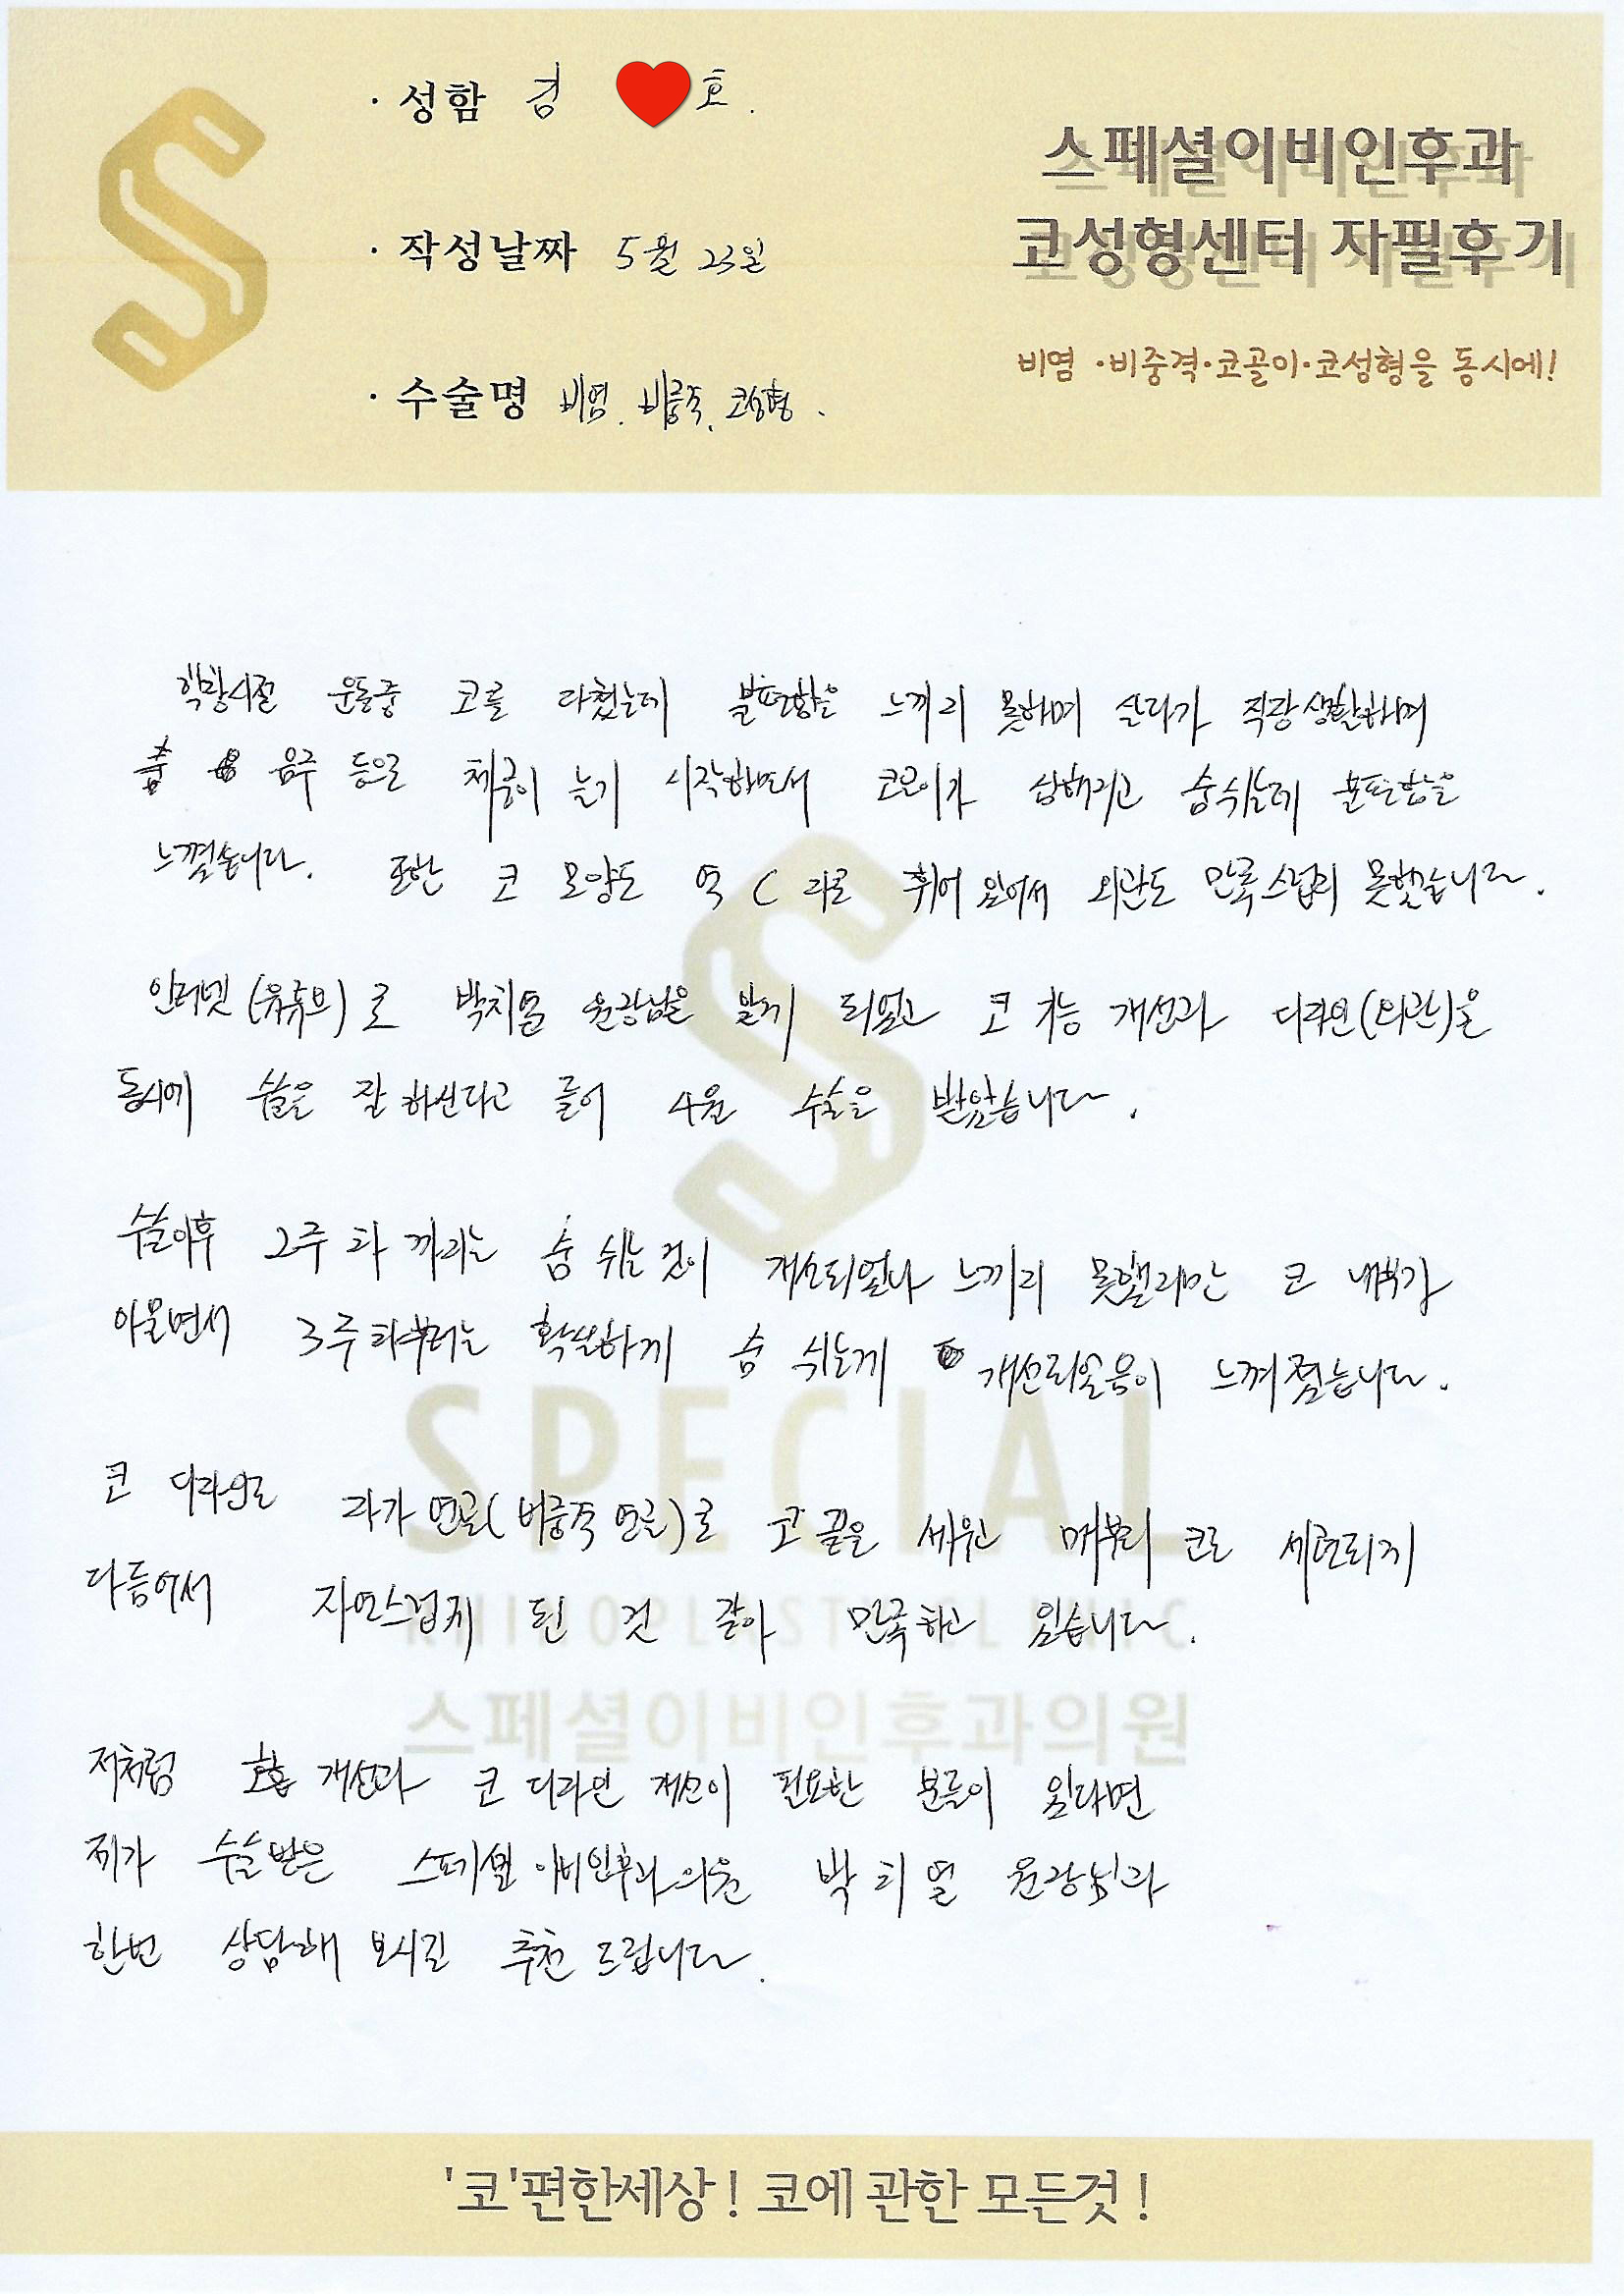 · 성함 경 ❤호.
스페셜이비인후과
코성형센터 자필후기
비염·비중격·코골이·코성형을 동시에!
· 작성날짜 5월 23일
· 수술명 비염. 비중격. 코성형.
학창시절 운동중 코를 다쳤는데 불편함을 느끼지 못하며 살다가 직장생활하며
음주 등으로 체중이 늘기 시작하면서 코골이가 심해지고 숨쉬는데 불편함을
느꼈습니다. 또한 코 모양도 역 C 자로 휘어 있어서 외관도 만족스럽지 못했습니다.
인터넷(유튜브)로 박치열 원장님을 알게 되었고 코 기능 개선과 디자인(외관)을
동시에 수술을 잘 하신다고 들어 4월 수술을 받았습니다.
수술이후 2주 차 까지는 숨 쉬는 것이 개선되었나 느끼지 못했지만 코 내부가
아물면서 3주차부터는 확실하게 숨 쉬는게 개선되었음이 느껴졌습니다.
코 디자인로 자가 연골(비중격 연골)로 코 끝을 세워 매부리 코로 세련되게
다듬어서 자연스럽게 된 것 같아 만족하고 있습니다.
저처럼 호흡 개선과 코 디자인 개선이 필요한 분들이 있다면
제가 수술받은 스페셜 이비인후과의원 박치열 원장님과
한번 상담해 보시길 추천 드립니다.
SPECIAL
스페셜이비인후과의원
'코'편한세상! 코에 관한 모든것!